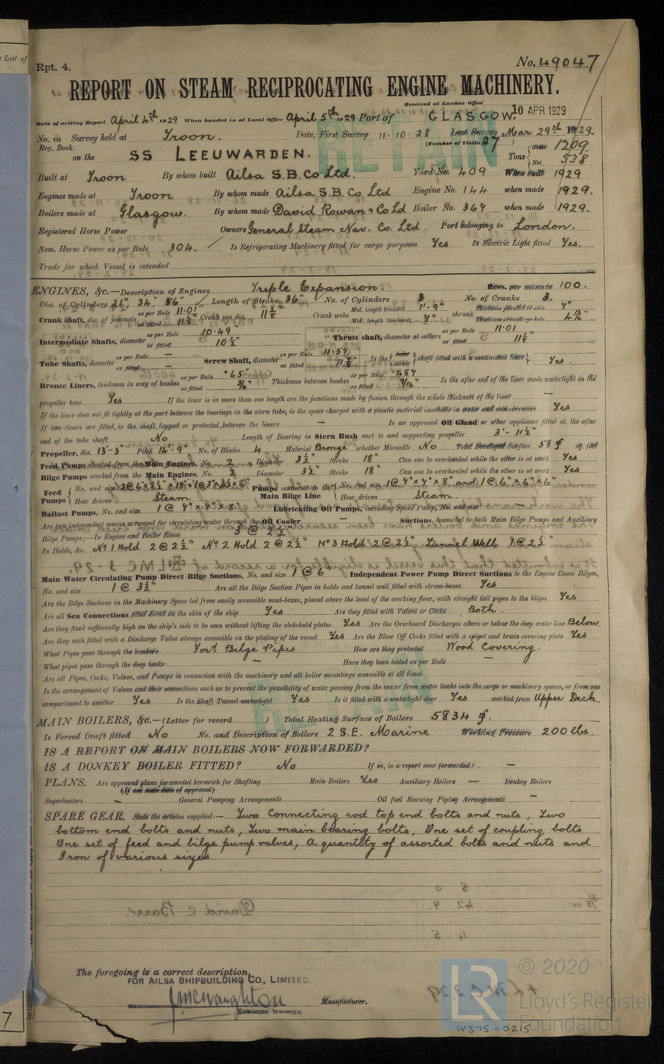 Rpt. 4.
No. 49047
REPORT ON STEAM RECIPROCATING ENGINE MACHINERY.
Received at London Office 10 APR 1929
Date of writing Report April 4th 1929 When handed in at Local Office April 5th 1929 Port of GLASGOW.
No. in Survey held at Troon. Date, First Survey 11-10-28 Last Survey Mar 29th 1929.
Reg. Book. (Number of Visits 27)
on the SS LEEUWARDEN. Tons Gross 1209 Net 538
Built at Troon By whom built Ailsa S.B. Co Ltd. Yard No. 409 When built 1929
Engines made at Troon By whom made Ailsa S.B. Co Ltd Engine No. 144 when made 1929.
Boilers made at Glasgow. By whom made David Rowan & Co Ld Boiler No. 367 when made 1929.
Registered Horse Power Owners General Steam Nav. Co. Ltd. Port belonging to London.
Nom. Horse Power as per Rule 304. Is Refrigerating Machinery fitted for cargo purposes Yes Is Electric Light fitted Yes.
Trade for which Vessel is intended
ENGINES, &c.—Description of Engines Triple Expansion Revs. per minute 100.
Dia. of Cylinders 21" 34" 56" Length of Stroke 36" No. of Cylinders 3 No. of Cranks 3.
Crank shaft, dia. of journals as per Rule 11.01 as fitted 11½" Crank pin dia. 11½" Crank webs Mid. length breadth 1'-9" Mid. length thickness 7" shrunk Thickness parallel to axis 7" Thickness around eye-hole
Intermediate Shafts, diameter as per Rule 10.49 as fitted 10½" Thrust shaft, diameter at collars as per Rule 11.01 as fitted 11½"
Tube Shafts, diameter as per Rule — as fitted — Screw Shaft, diameter as per Rule 11.57 as fitted Is the tube screw shaft fitted with a continuous liner Yes.
Bronze Liners, thickness in way of bushes as per Rule .65" as fitted Thickness between bushes as per Rule .487 as fitted Is the after end of the liner made watertight in the
propeller boss Yes If the liner is in more than one length are the junctions made by fusion through the whole thickness of the liner —
If the liner does not fit tightly at the part between the bearings in the stern tube, is the space charged with a plastic material insoluble in water and non-corrosive Yes
If two liners are fitted, is the shaft lapped or protected between the liners — Is an approved Oil Gland or other appliance fitted at the after
end of the tube shaft No Length of Bearing in Stern Bush next to and supporting propeller 3'-11½"
Propeller, dia. 13'-3" Pitch 14'-9" No. of Blades 4 Material Bronze whether Moveable No Total Developed Surface 58 sq. feet
Feed Pumps worked from the Main Engines, No. 2 Diameter 3½" Stroke 18" Can one be overhauled while the other is at work Yes
Bilge Pumps worked from the Main Engines, No. 2 Diameter 3½" Stroke 18" Can one be overhauled while the other is at work Yes
Feed Pumps No. and size How driven Steam Pumps connected to the Main Bilge Line No. and size 1 @ 4"x4"x8" and 1 @ 6"x6"x6" How driven Steam.
Ballast Pumps, No. and size 1 @ 4"x4"x8" Lubricating Oil Pumps, including Spare Pump, No. and size —
Are two independent means arranged for circulating water through the Oil Cooler — Suctions, connected to both Main Bilge Pumps and Auxiliary
Bilge Pumps:—In Engine and Boiler Room 3 @ 2½"
In Holds, &c. No 1 Hold 2 @ 2½" No 2 Hold 2 @ 2½" No 3 Hold 2 @ 2½" Tunnel Well 1 @ 2½"
Main Water Circulating Pump Direct Bilge Suctions, No. and size 1 @ 6" Independent Power Pump Direct Suctions to the Engine Room Bilges,
No. and size 1 @ 3½" Are all the Bilge Suction Pipes in holds and tunnel well fitted with strum-boxes Yes
Are the Bilge Suctions in the Machinery Space led from easily accessible mud-boxes, placed above the level of the working floor, with straight tail pipes to the bilges Yes
Are all Sea Connections fitted direct on the skin of the ship Yes Are they fitted with Valves or Cocks Both.
Are they fixed sufficiently high on the ship's side to be seen without lifting the stokehold plates Yes Are the Overboard Discharges above or below the deep water line Below
Are they each fitted with a Discharge Valve always accessible on the plating of the vessel Yes Are the Blow Off Cocks fitted with a spigot and brass covering plate Yes
What Pipes pass through the bunkers Ford Bilge Pipes How are they protected Wood Covering.
What pipes pass through the deep tanks — Have they been tested as per Rule —
Are all Pipes, Cocks, Valves, and Pumps in connection with the machinery and all boiler mountings accessible at all times
Is the arrangement of Valves and their connections such as to prevent the possibility of water passing from the sea or from water tanks into the cargo or machinery spaces, or from one
compartment to another Yes Is the Shaft Tunnel watertight Yes Is it fitted with a watertight door Yes worked from Upper Deck.
MAIN BOILERS, &c.—(Letter for record Total Heating Surface of Boilers 5834
Is Forced Draft fitted No No. and Description of Boilers 2 S.E. Marine Working Pressure 200 lbs.
IS A REPORT ON MAIN BOILERS NOW FORWARDED?
IS A DONKEY BOILER FITTED? No If so, is a report now forwarded? —
PLANS. Are approved plans forwarded herewith for Shafting Main Boilers Yes Auxiliary Boilers — Donkey Boilers
(If not state date of approval)
Superheaters — General Pumping Arrangements Oil fuel Burning Piping Arrangements —
SPARE GEAR. State the articles supplied:— Two Connecting rod top end bolts and nuts, Two
bottom end bolts and nuts, Two main bearing bolts, One set of coupling bolts
One set of feed and bilge pump valves, A quantity of assorted bolts and nuts and
Iron of various sizes
The foregoing is a correct description,
FOR AILSA SHIPBUILDING CO., LIMITED.
Manufacturer.
© 2020
LR
Lloyd's Register
Foundation
W375-0215